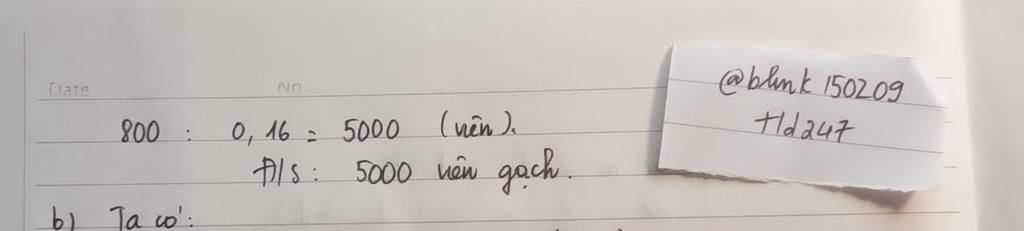 Date No
800 : 0,16 = 5000 (viên).
Đ/S: 5000 viên gạch.
b) Ta có:
@blink 150209
tld247